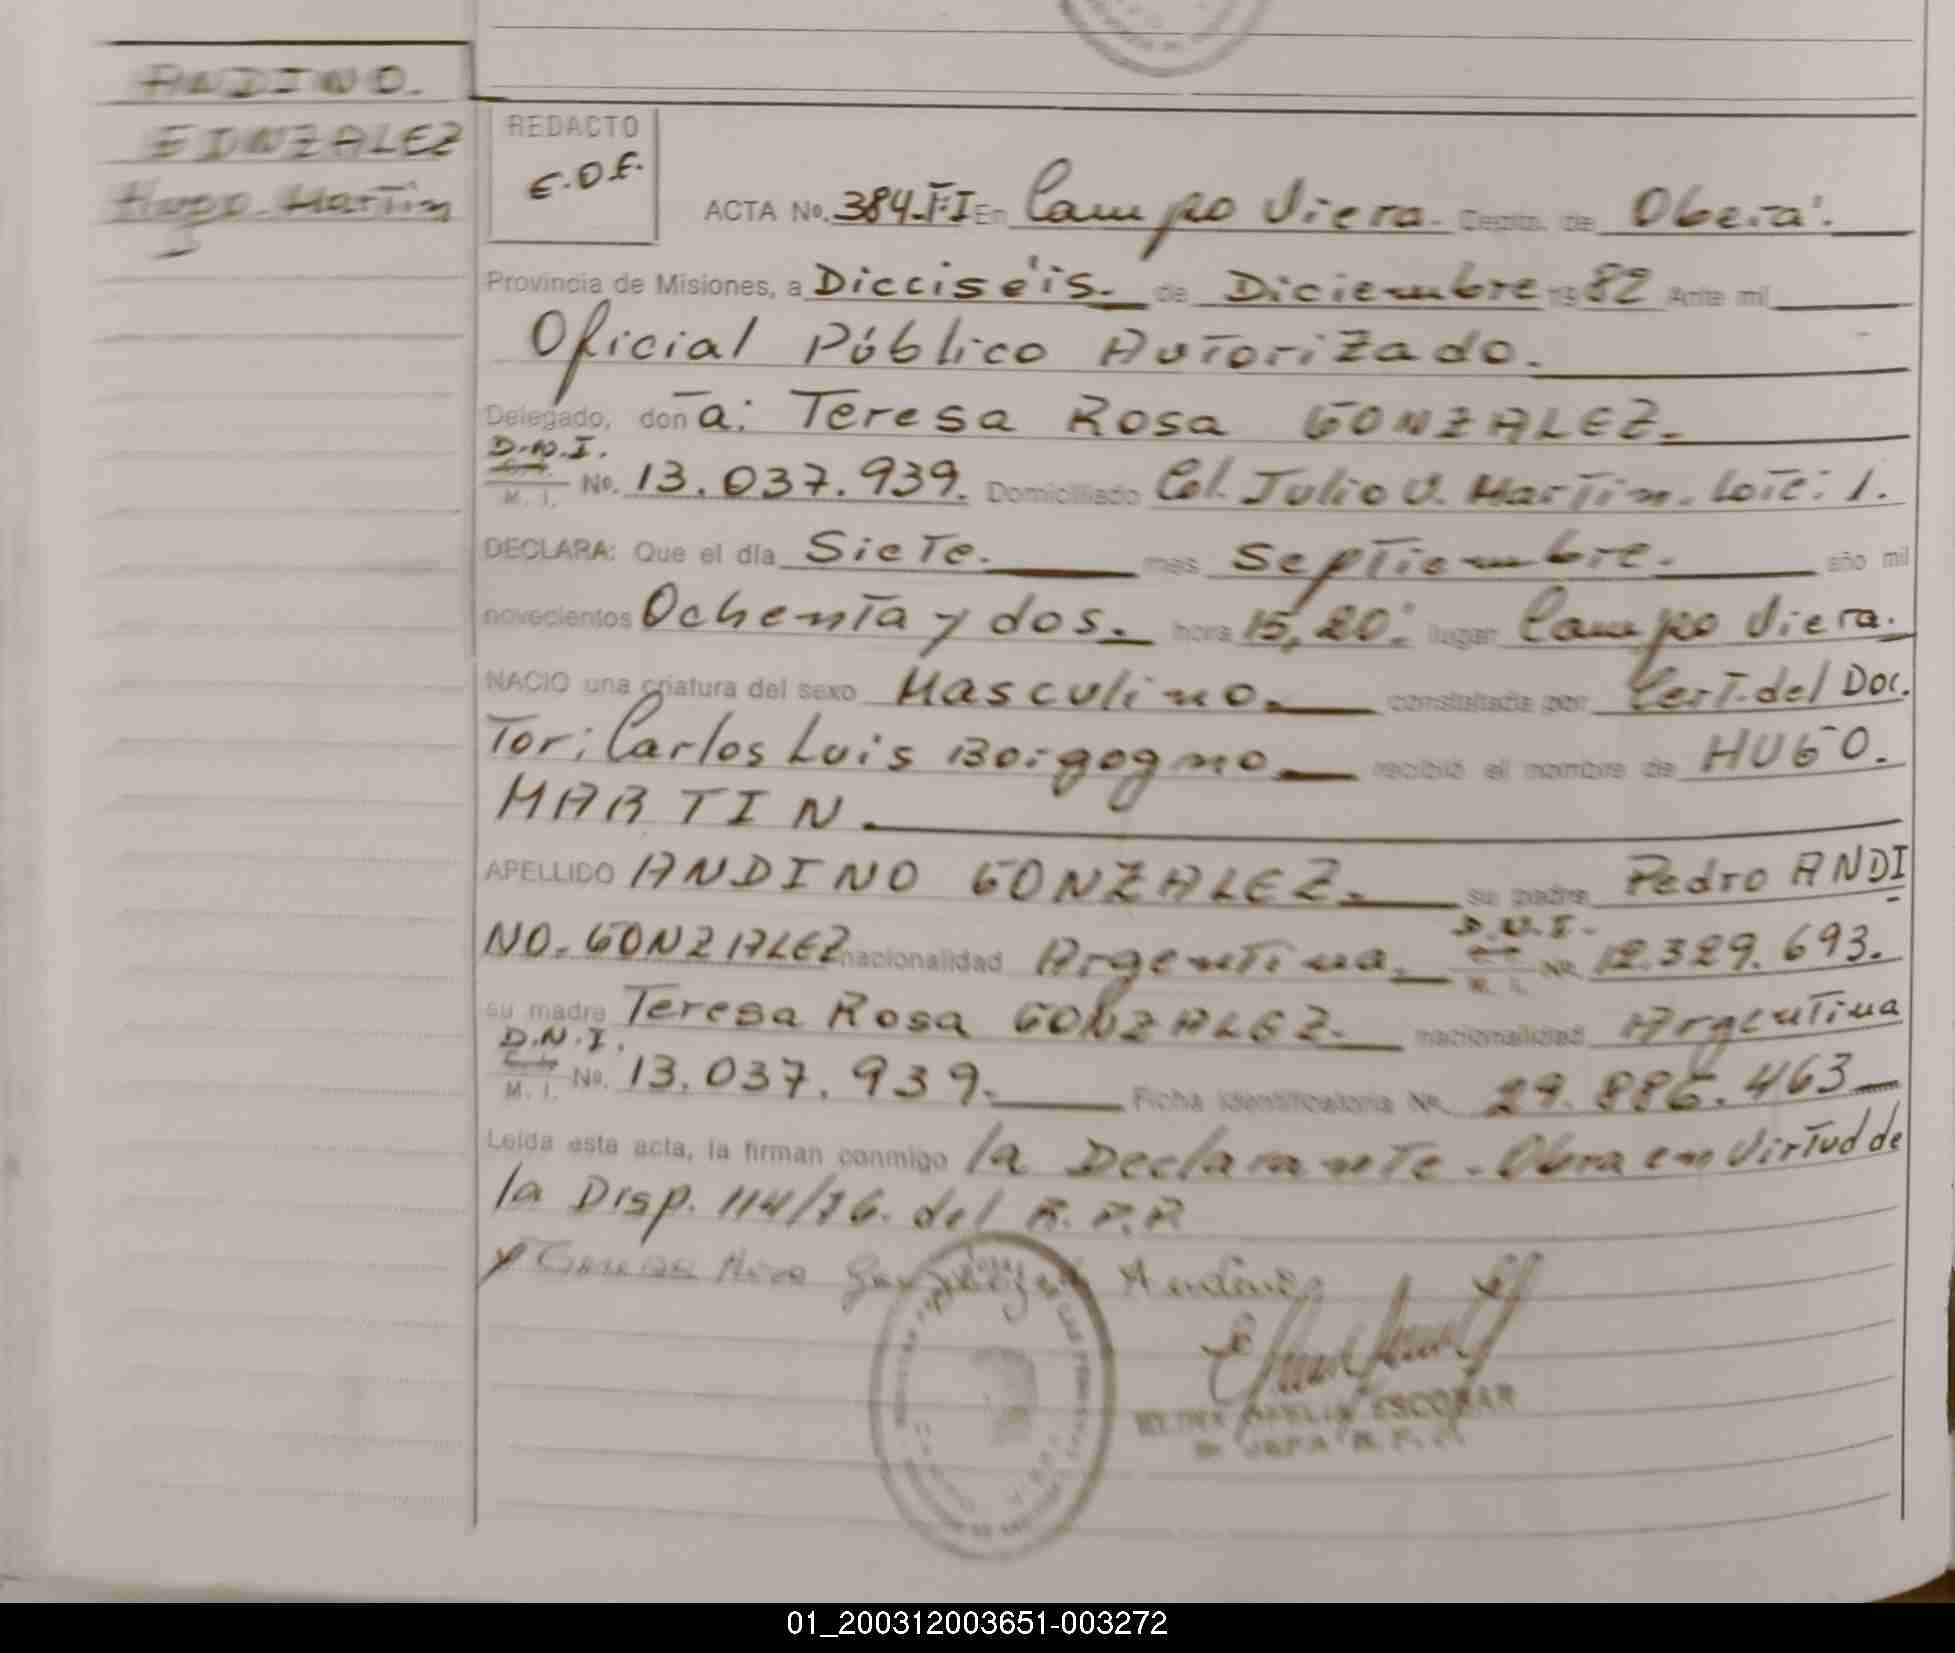 ANDINO.
GONZALEZ
Hugo. Martin
REDACTO
E.O.E.
ACTA No. 384-FI En Campo Viera. Depto. de Oberá.
Provincia de Misiones, a Dieciséis. de Diciembre 19 82 Ante mí
Oficial Público Autorizado.
Delegado, don a: Teresa Rosa GONZALEZ.
D.N.I.
M. I. No. 13.037.939. Domiciliado Col. Julio U. Martin. Lote: 1.
DECLARA: Que el día Siete. mes Septiembre. año mil
novecientos Ochenta y dos. hora 15,20. lugar Campo Viera.
NACIO una criatura del sexo Masculino. constatada por Cert. del Doc.
Tor; Carlos Luis Borgogno recibió el nombre de HUGO.
MARTIN.
APELLIDO ANDINO GONZALEZ. su padre Pedro ANDI
NO. GONZALEZ nacionalidad Argentina. D.N.I. M. I. No. 12.329.693.
su madre Teresa Rosa GONZALEZ. nacionalidad Argentina
D.N.I.
M. I. No. 13.037.939. Ficha Identificatoria No. 29.886.463
Leída esta acta, la firman conmigo la Declarante. Obra en Virtud de
la Disp. 114/76. del R.P.P.
Teresa Rosa Gonzalez de Andino
ESCOBAR
JEFA R.P.
01_200312003651-003272